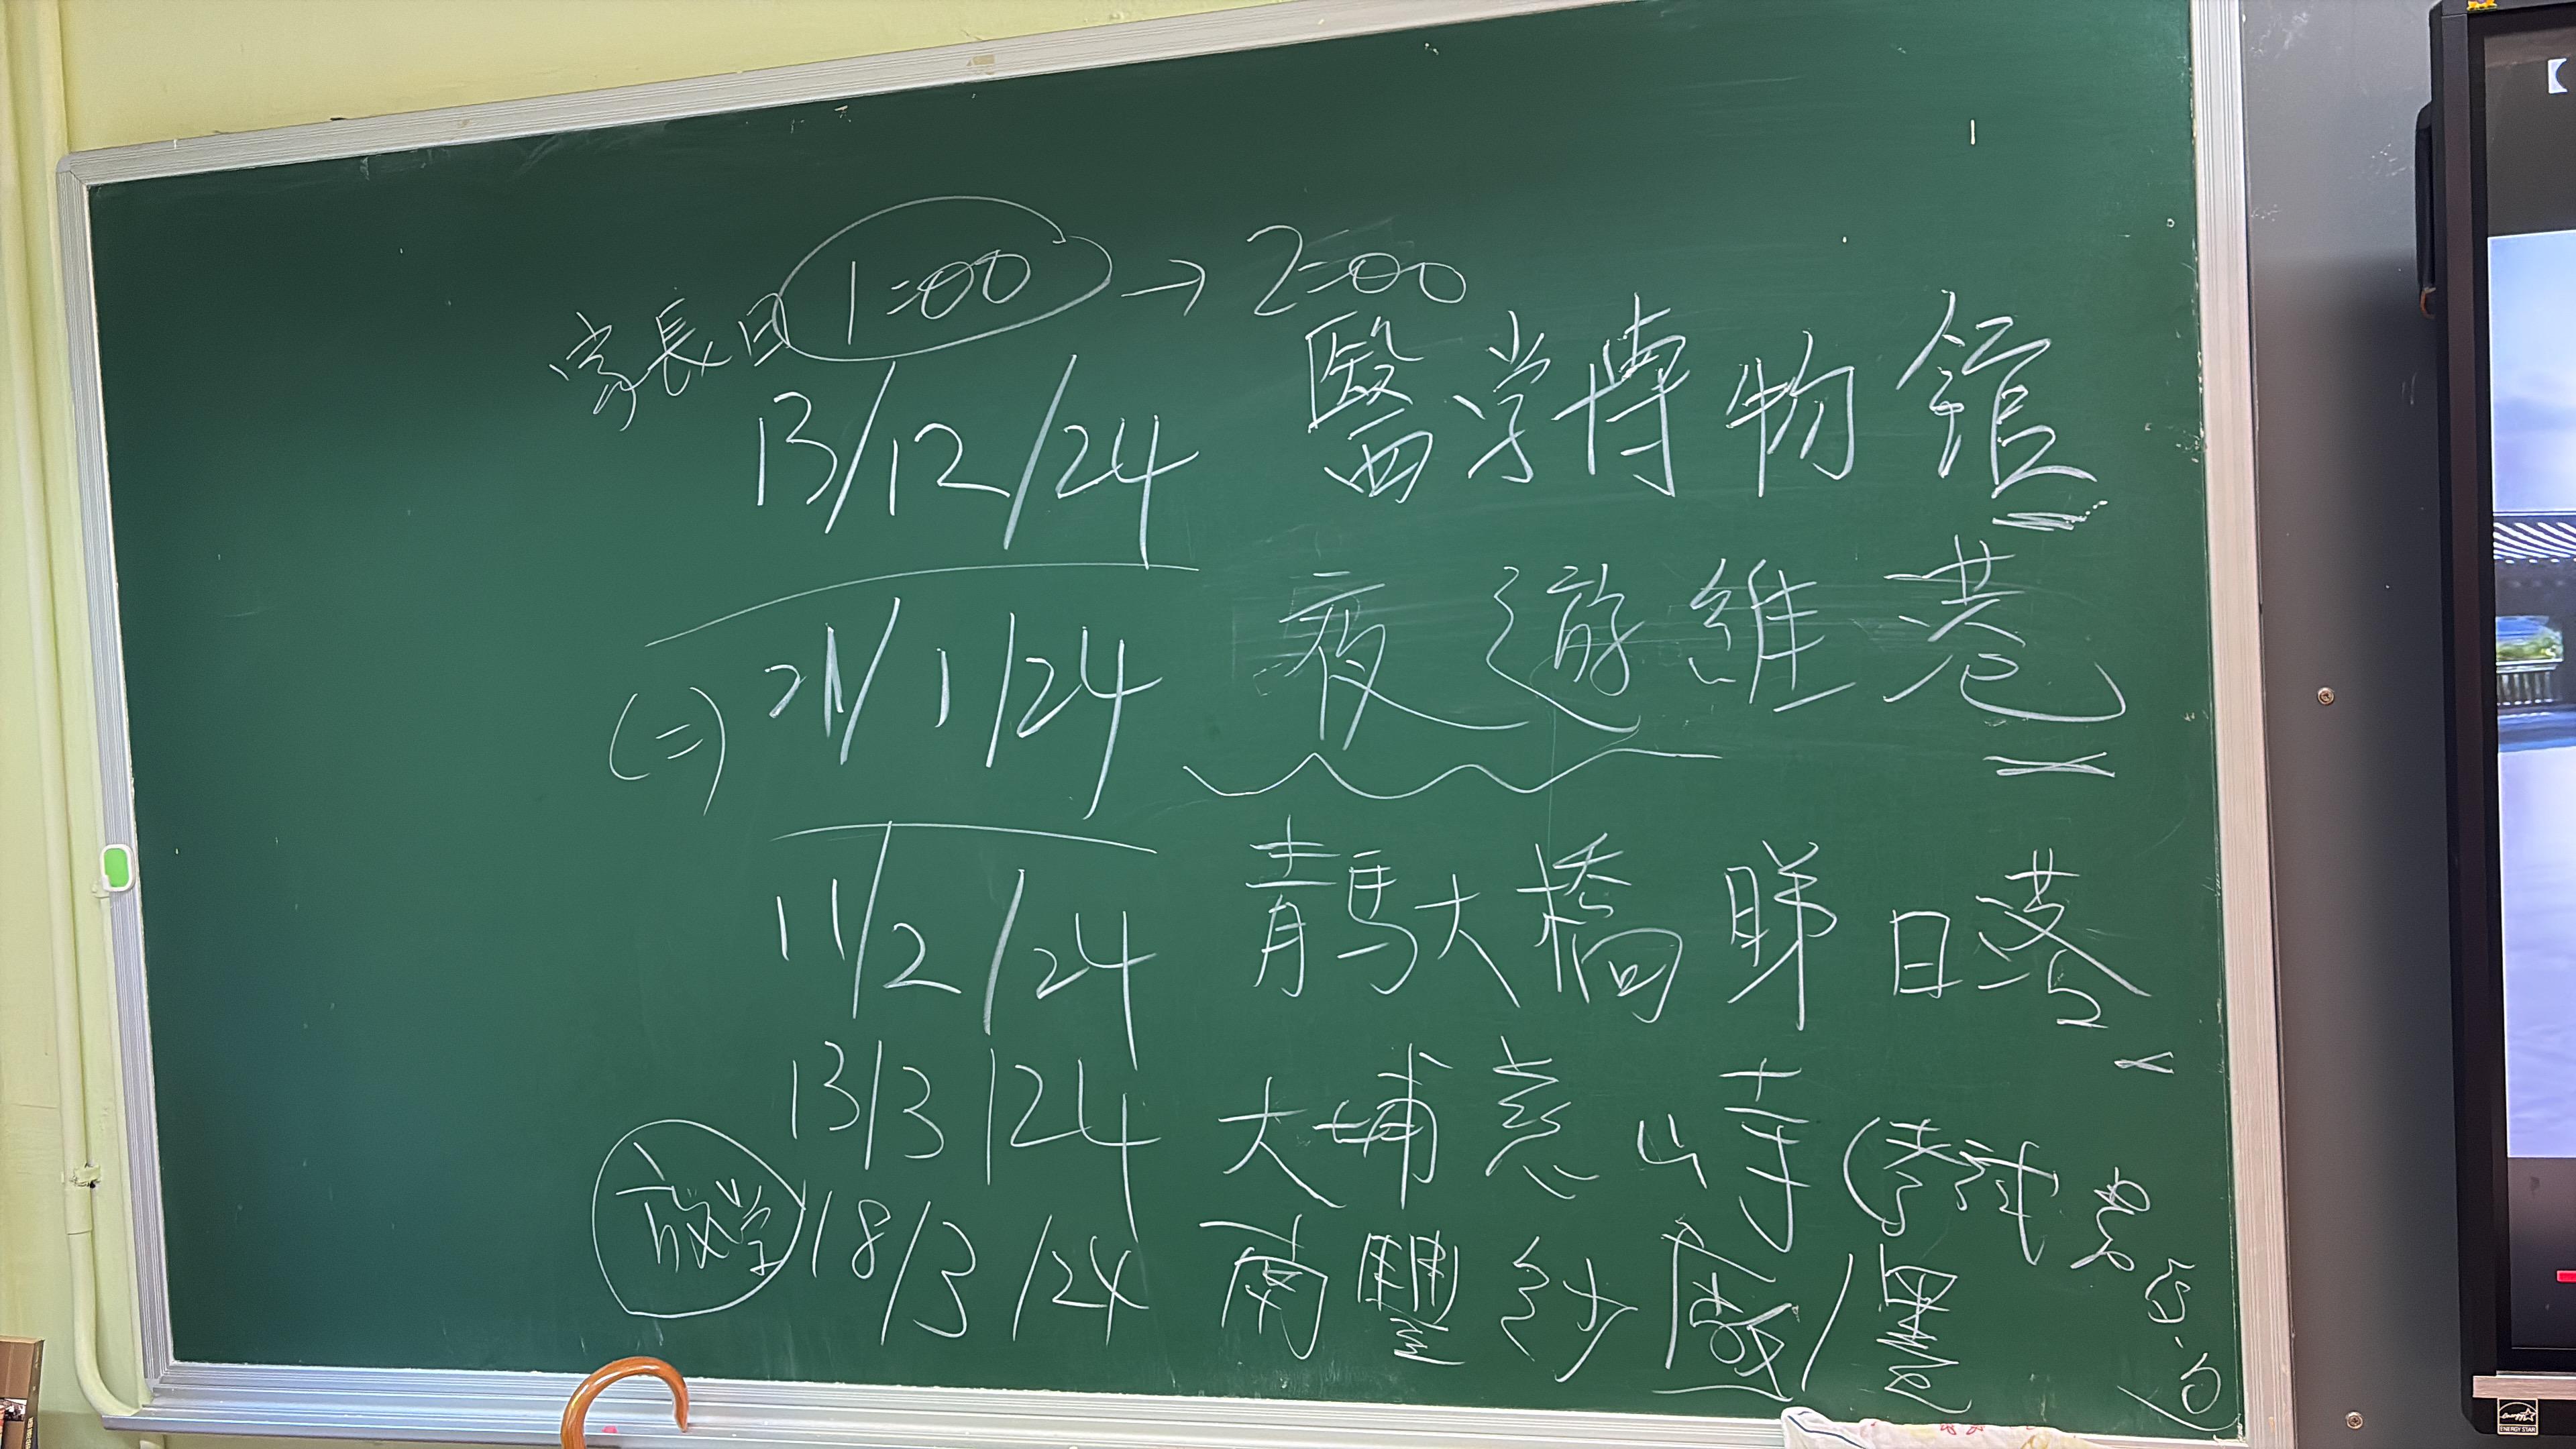 1:00 → 2:00
家長日
13/12/24 醫学博物館
(二) 21/1/24 夜遊維港
11/2/24 青馬大橋睇日落
13/3/24 大埔慈山寺 (考試
放学 18/3/24 南豐紗廠/墨
ENERGY STAR